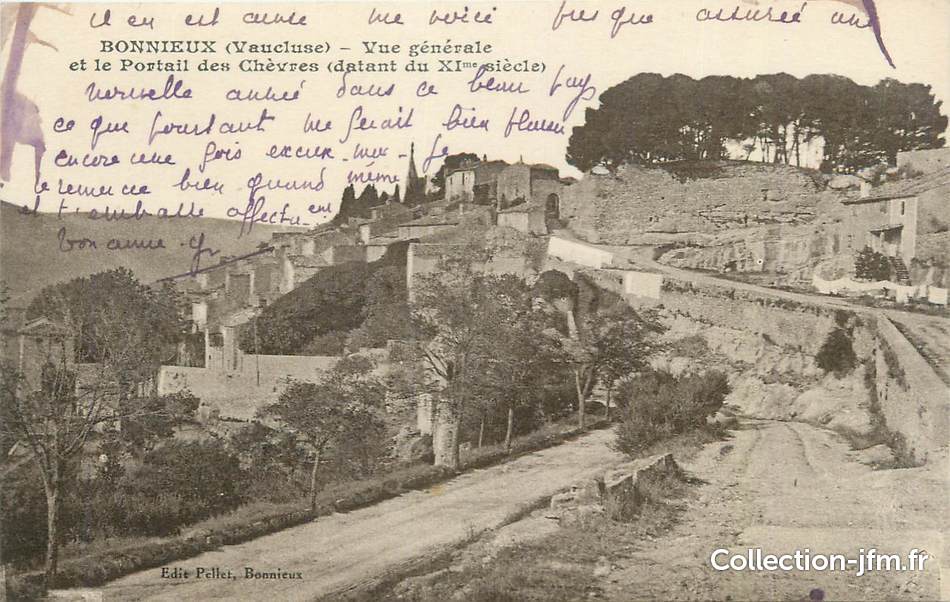 il en est ainsi me voici presque assurée une
BONNIEUX (Vaucluse) – Vue générale
et le Portail des Chèvres (datant du XIme siècle)
nouvelle année dans ce beau pays
ce que pourtant me ferait bien
encore une fois excuse moi Je
te remercie bien quand même
et t'emballe affectu
bonne année
Edit Pellet, Bonnieux
Collection-jfm.fr